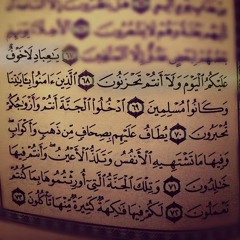 يَٰعِبَادِ لَا خَوْفٌ
عَلَيْكُمُ ٱلْيَوْمَ وَلَآ أَنتُمْ تَحْزَنُونَ ٦٨ ٱلَّذِينَ ءَامَنُوا۟ بِـَٔايَٰتِنَا
وَكَانُوا۟ مُسْلِمِينَ ٦٩ ٱدْخُلُوا۟ ٱلْجَنَّةَ أَنتُمْ وَأَزْوَٰجُكُمْ
تُحْبَرُونَ ٧٠ يُطَافُ عَلَيْهِم بِصِحَافٍ مِّن ذَهَبٍ وَأَكْوَابٍ
وَفِيهَا مَا تَشْتَهِيهِ ٱلْأَنفُسُ وَتَلَذُّ ٱلْأَعْيُنُ وَأَنتُمْ فِيهَا
خَٰلِدُونَ ٧١ وَتِلْكَ ٱلْجَنَّةُ ٱلَّتِىٓ أُورِثْتُمُوهَا بِمَا كُنتُمْ
تَعْمَلُونَ ٧٢ لَكُمْ فِيهَا فَٰكِهَةٌ كَثِيرَةٌ مِّنْهَا تَأْكُلُونَ ٧٣